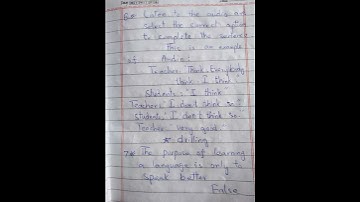 6* Listen to the audio and
select the correct option
to complete the sentence
This is an example
of.
Audio:
Teacher: Think. Everybody
think. I think
Students: "I think"
Teacher: I don't think so"
Students: I don't think so.
Teacher: very good.
* drilling
7* The purpose of learning
a language is only to
speak better
False